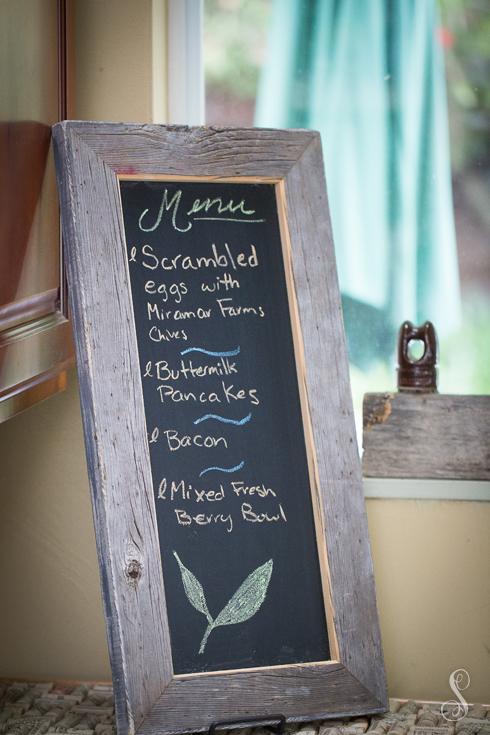 Menu
Scrambled
eggs with
Miramar Farms
Chives
Buttermilk
Pancakes
Bacon
Mixed Fresh
Berry Bowl
S